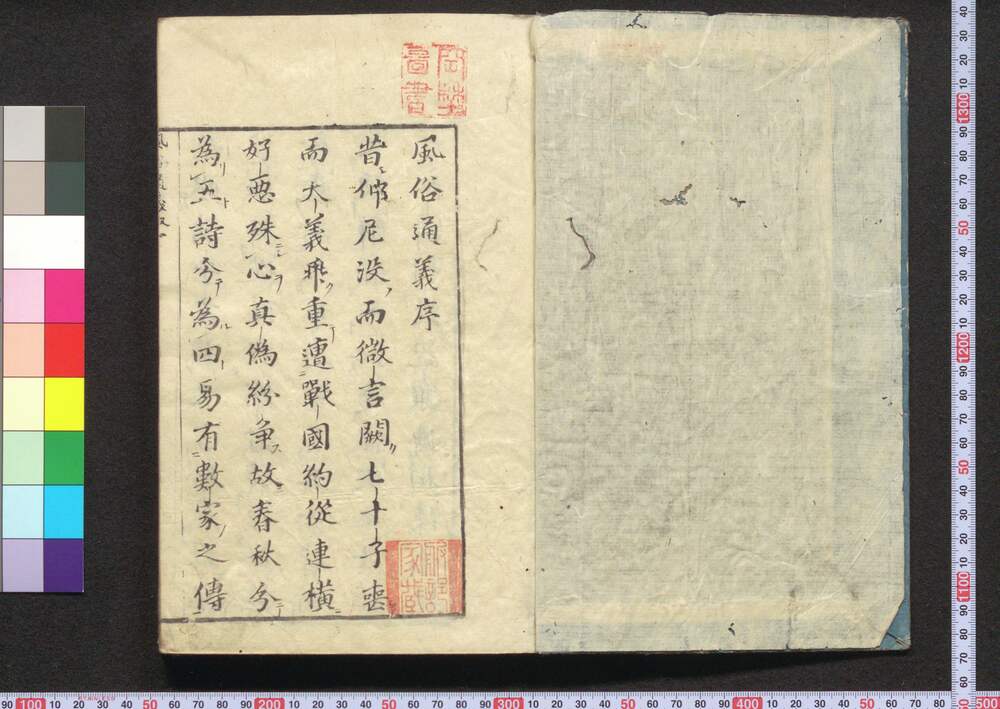 風俗通義序
昔仲尼没而微言闕七十子喪
而大義乖重遭戰國約從連橫
好惡殊心真偽紛争故春秋分
為五詩分為四易有數家之傳